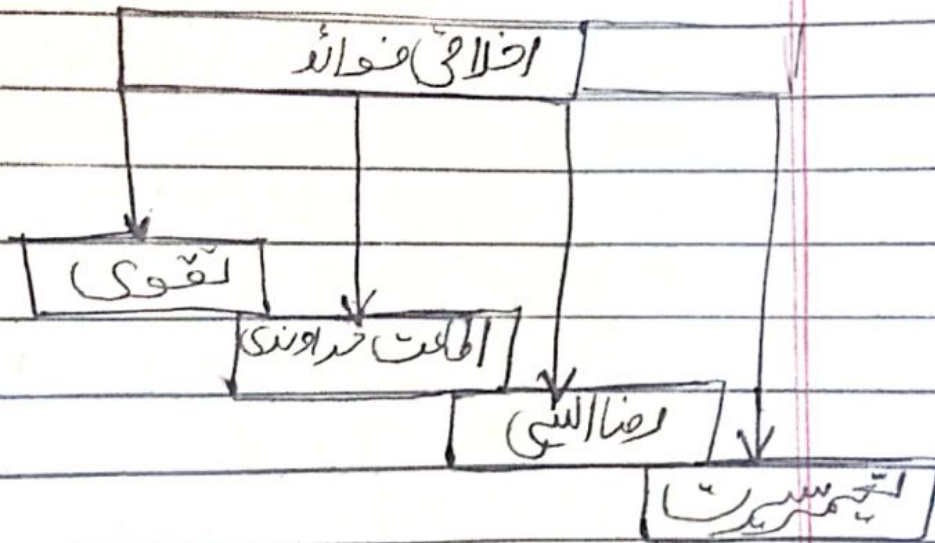 اخلاقی فوائد
تقوی
اطاعت خداوندی
رضا الہی
تعمیر سیرت